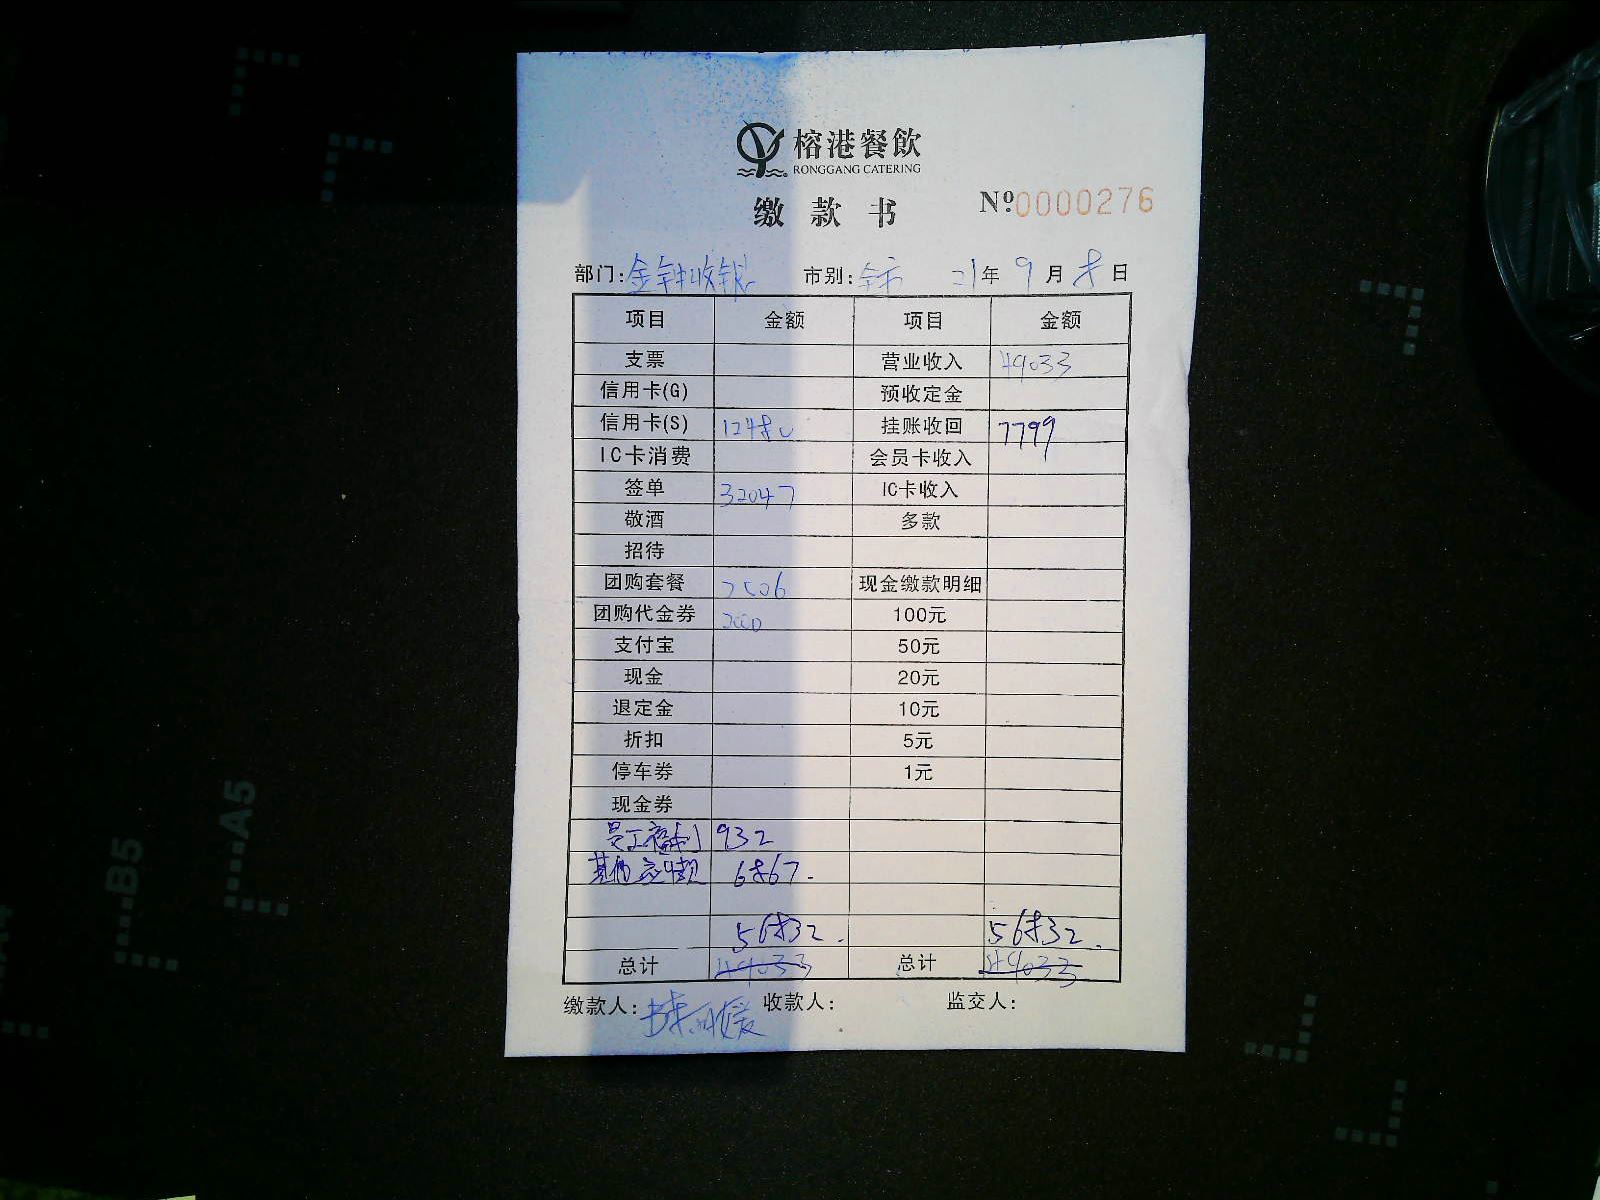 榕港餐飲
RONGGANG CATERING
缴款书 Nº 0000276
部门: 金钟收银 市别: 全市 21年9月8日
项目 金额 项目 金额
支票 营业收入 49033
信用卡(G) 预收定金
信用卡(S) 12480 挂账收回 7799
IC卡消费 会员卡收入
签单 32047 IC卡收入
敬酒 多款
招待
团购套餐 2506 现金缴款明细
团购代金券 2000 100元
支付宝 50元
现金 20元
退定金 10元
折扣 5元
停车券 1元
现金券
员工福利 932
其他应收款 6867.
56832. 56832.
总计 49033 总计 49033
缴款人: 收款人: 监交人:
A5
B5